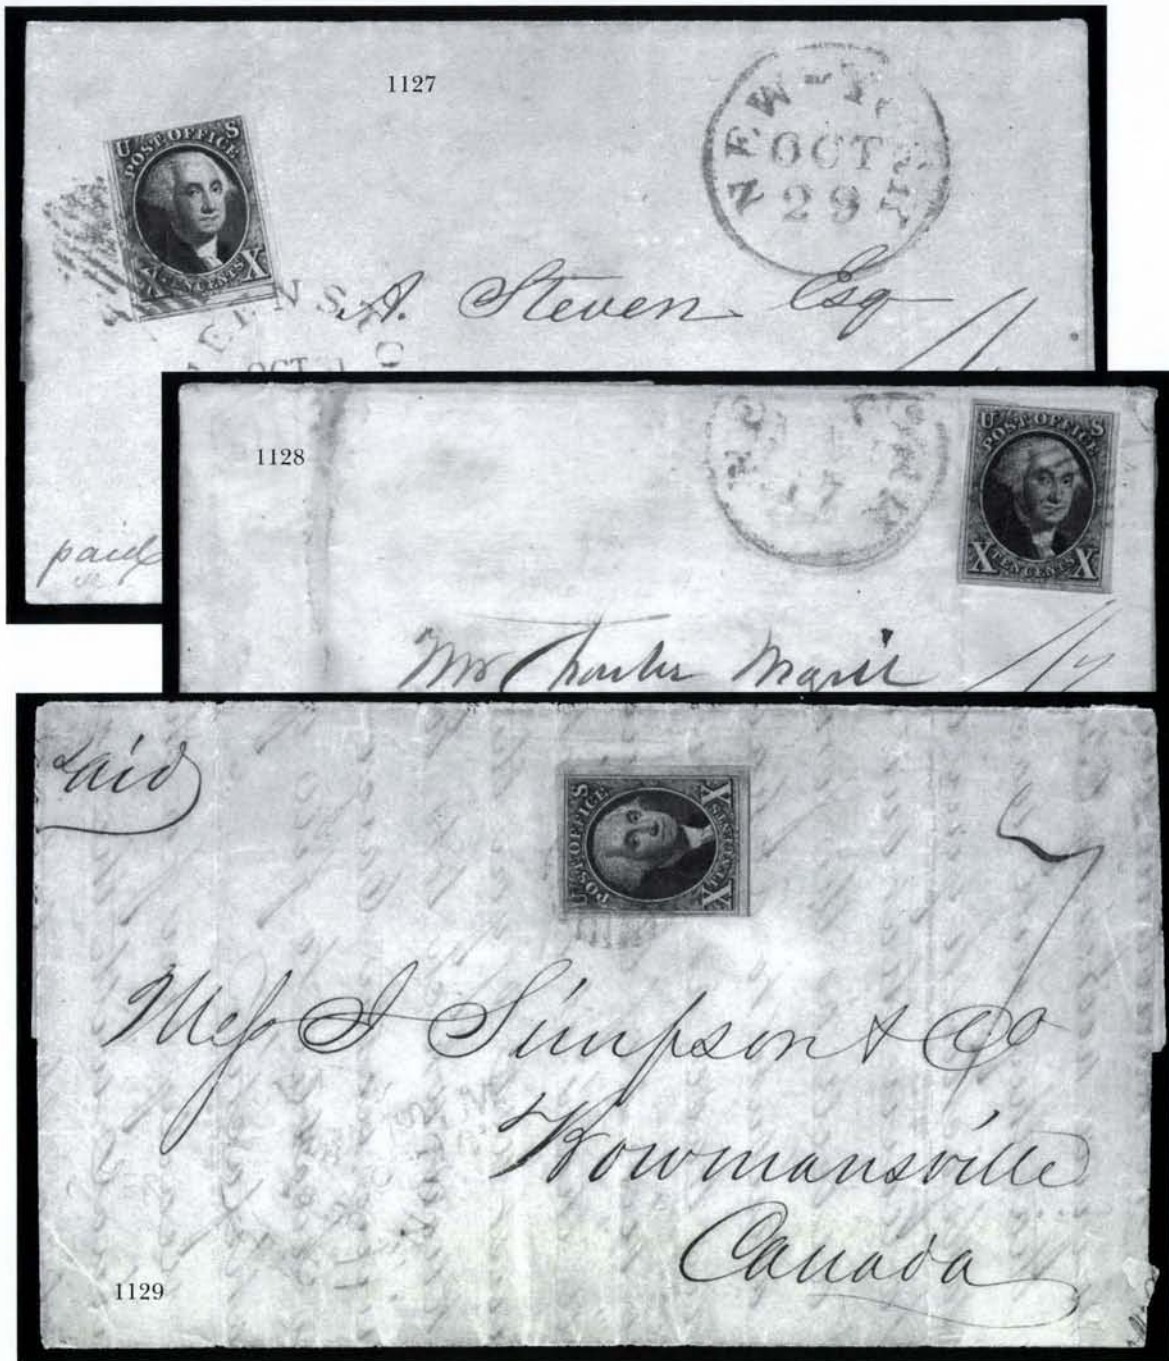 1127
U S
POST OFFICE
X TEN CENTS X
NEW-YORK
OCT
29
A. Steven Esq
OCT
paid
1128
17
U S
POST OFFICE
X TEN CENTS X
Mr Charles
Paid
U S
POST OFFICE
X TEN CENTS X
Mess J Simpson & Co
Bowmansville
Canada
1129